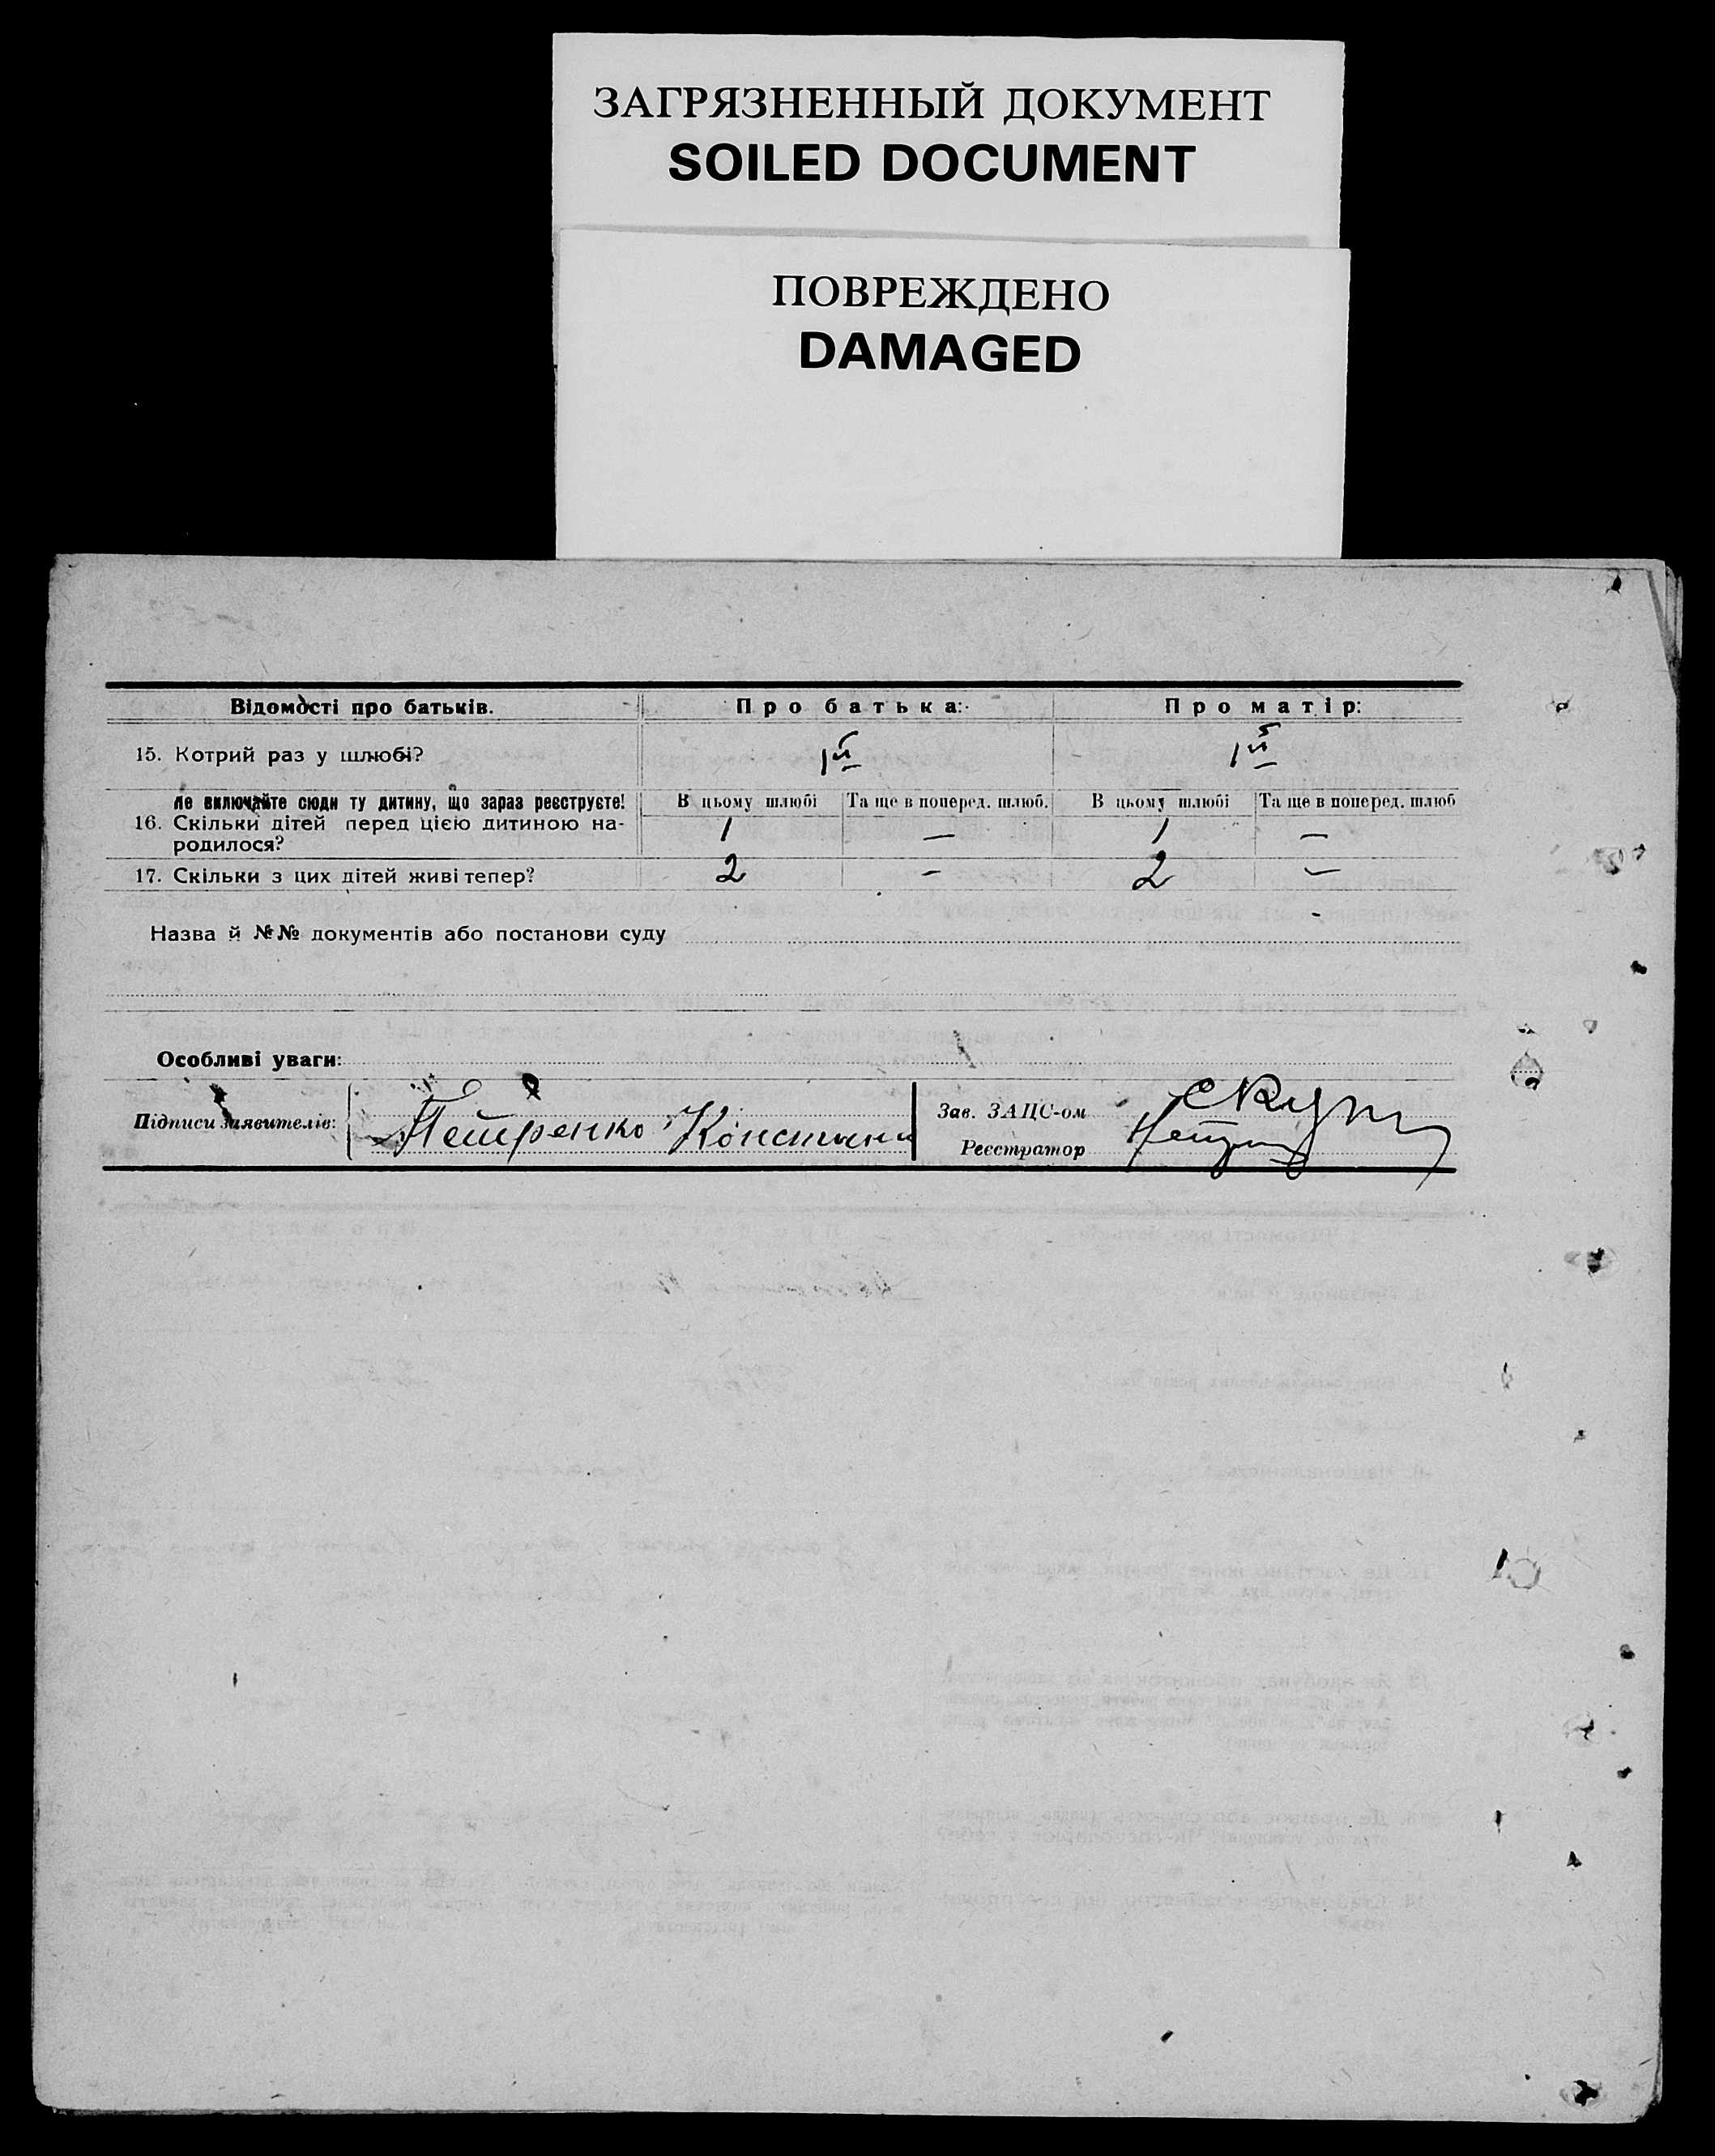 ЗАГРЯЗНЕННЫЙ ДОКУМЕНТ
SOILED DOCUMENT
ПОВРЕЖДЕНО
DAMAGED
Відомості про батьків. Про батька: Про матір:
15. Котрий раз у шлюбі? 1й 1й
Не включайте сюди ту дитину, що зараз реєструєте! В цьому шлюбі Та ще в поперед. шлюб. В цьому шлюбі Та ще в поперед. шлюб
16. Скільки дітей перед цією дитиною на-
родилося? 1 — 1 —
17. Скільки з цих дітей живі тепер? 2 – 2 –
Назва й №№ документів або постанови суду
Особливі уваги:
Підписи заявителів: Петренко Констянт Зав. ЗАЦС-ом
Реєстратор